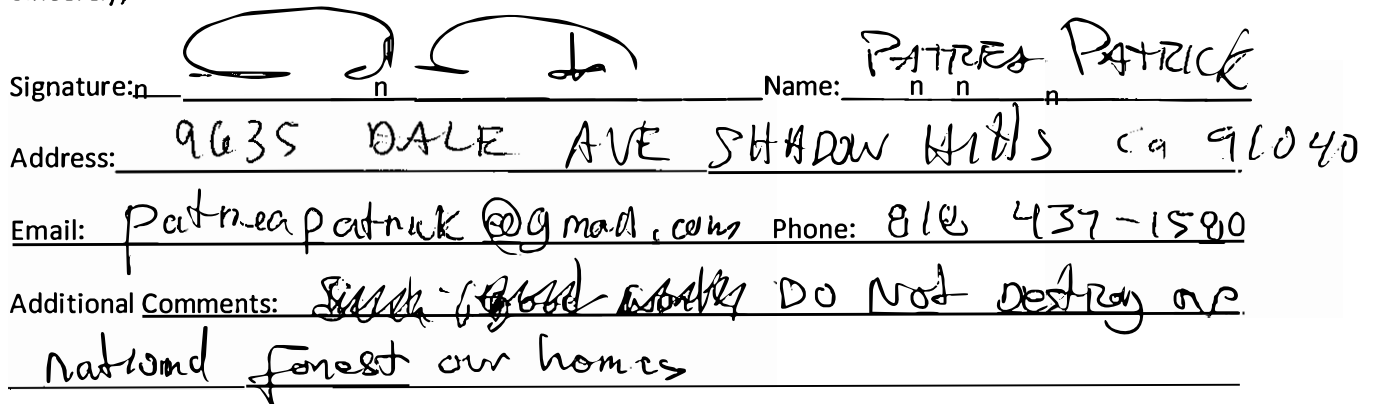 Sincerely,
Signature: Name: PATRIEA PATRICK
Address: 9635 DALE AVE SHADOW Hills Ca 91040
Email: patrieapatrick@gmail.com Phone: 818 437-1580
Additional Comments: DO Not Destroy our
national forest our homes